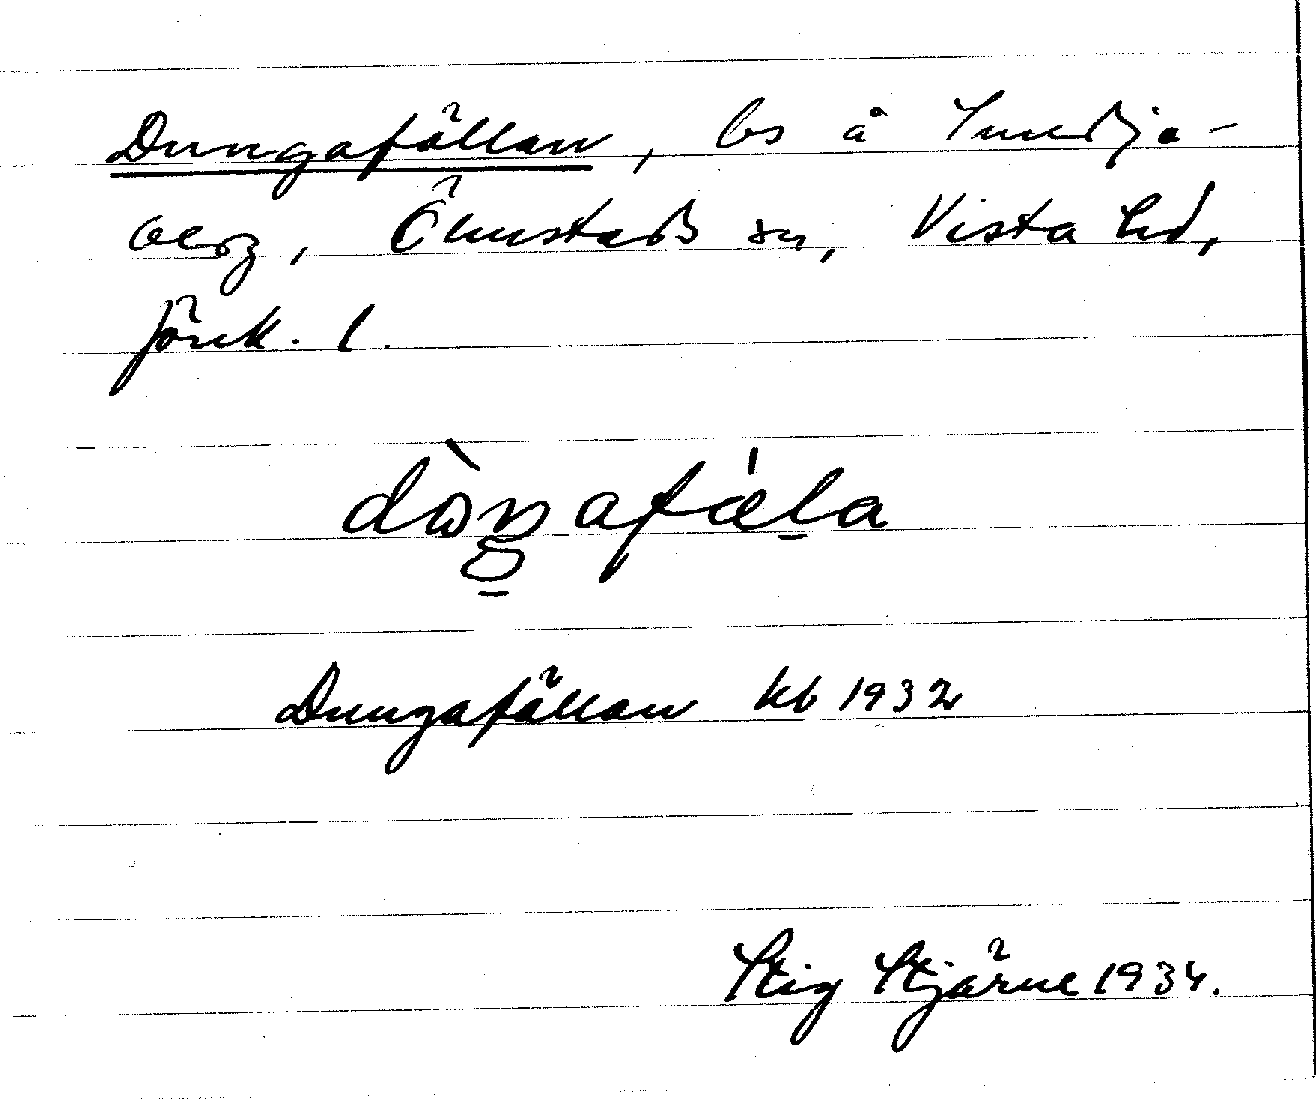 Dungafällan, ls å Smedja-
berg, Ölmstads sn, Vista hd,
Jönk. l.
Dungafällan kb 1932
Stig Stjärne 1934.